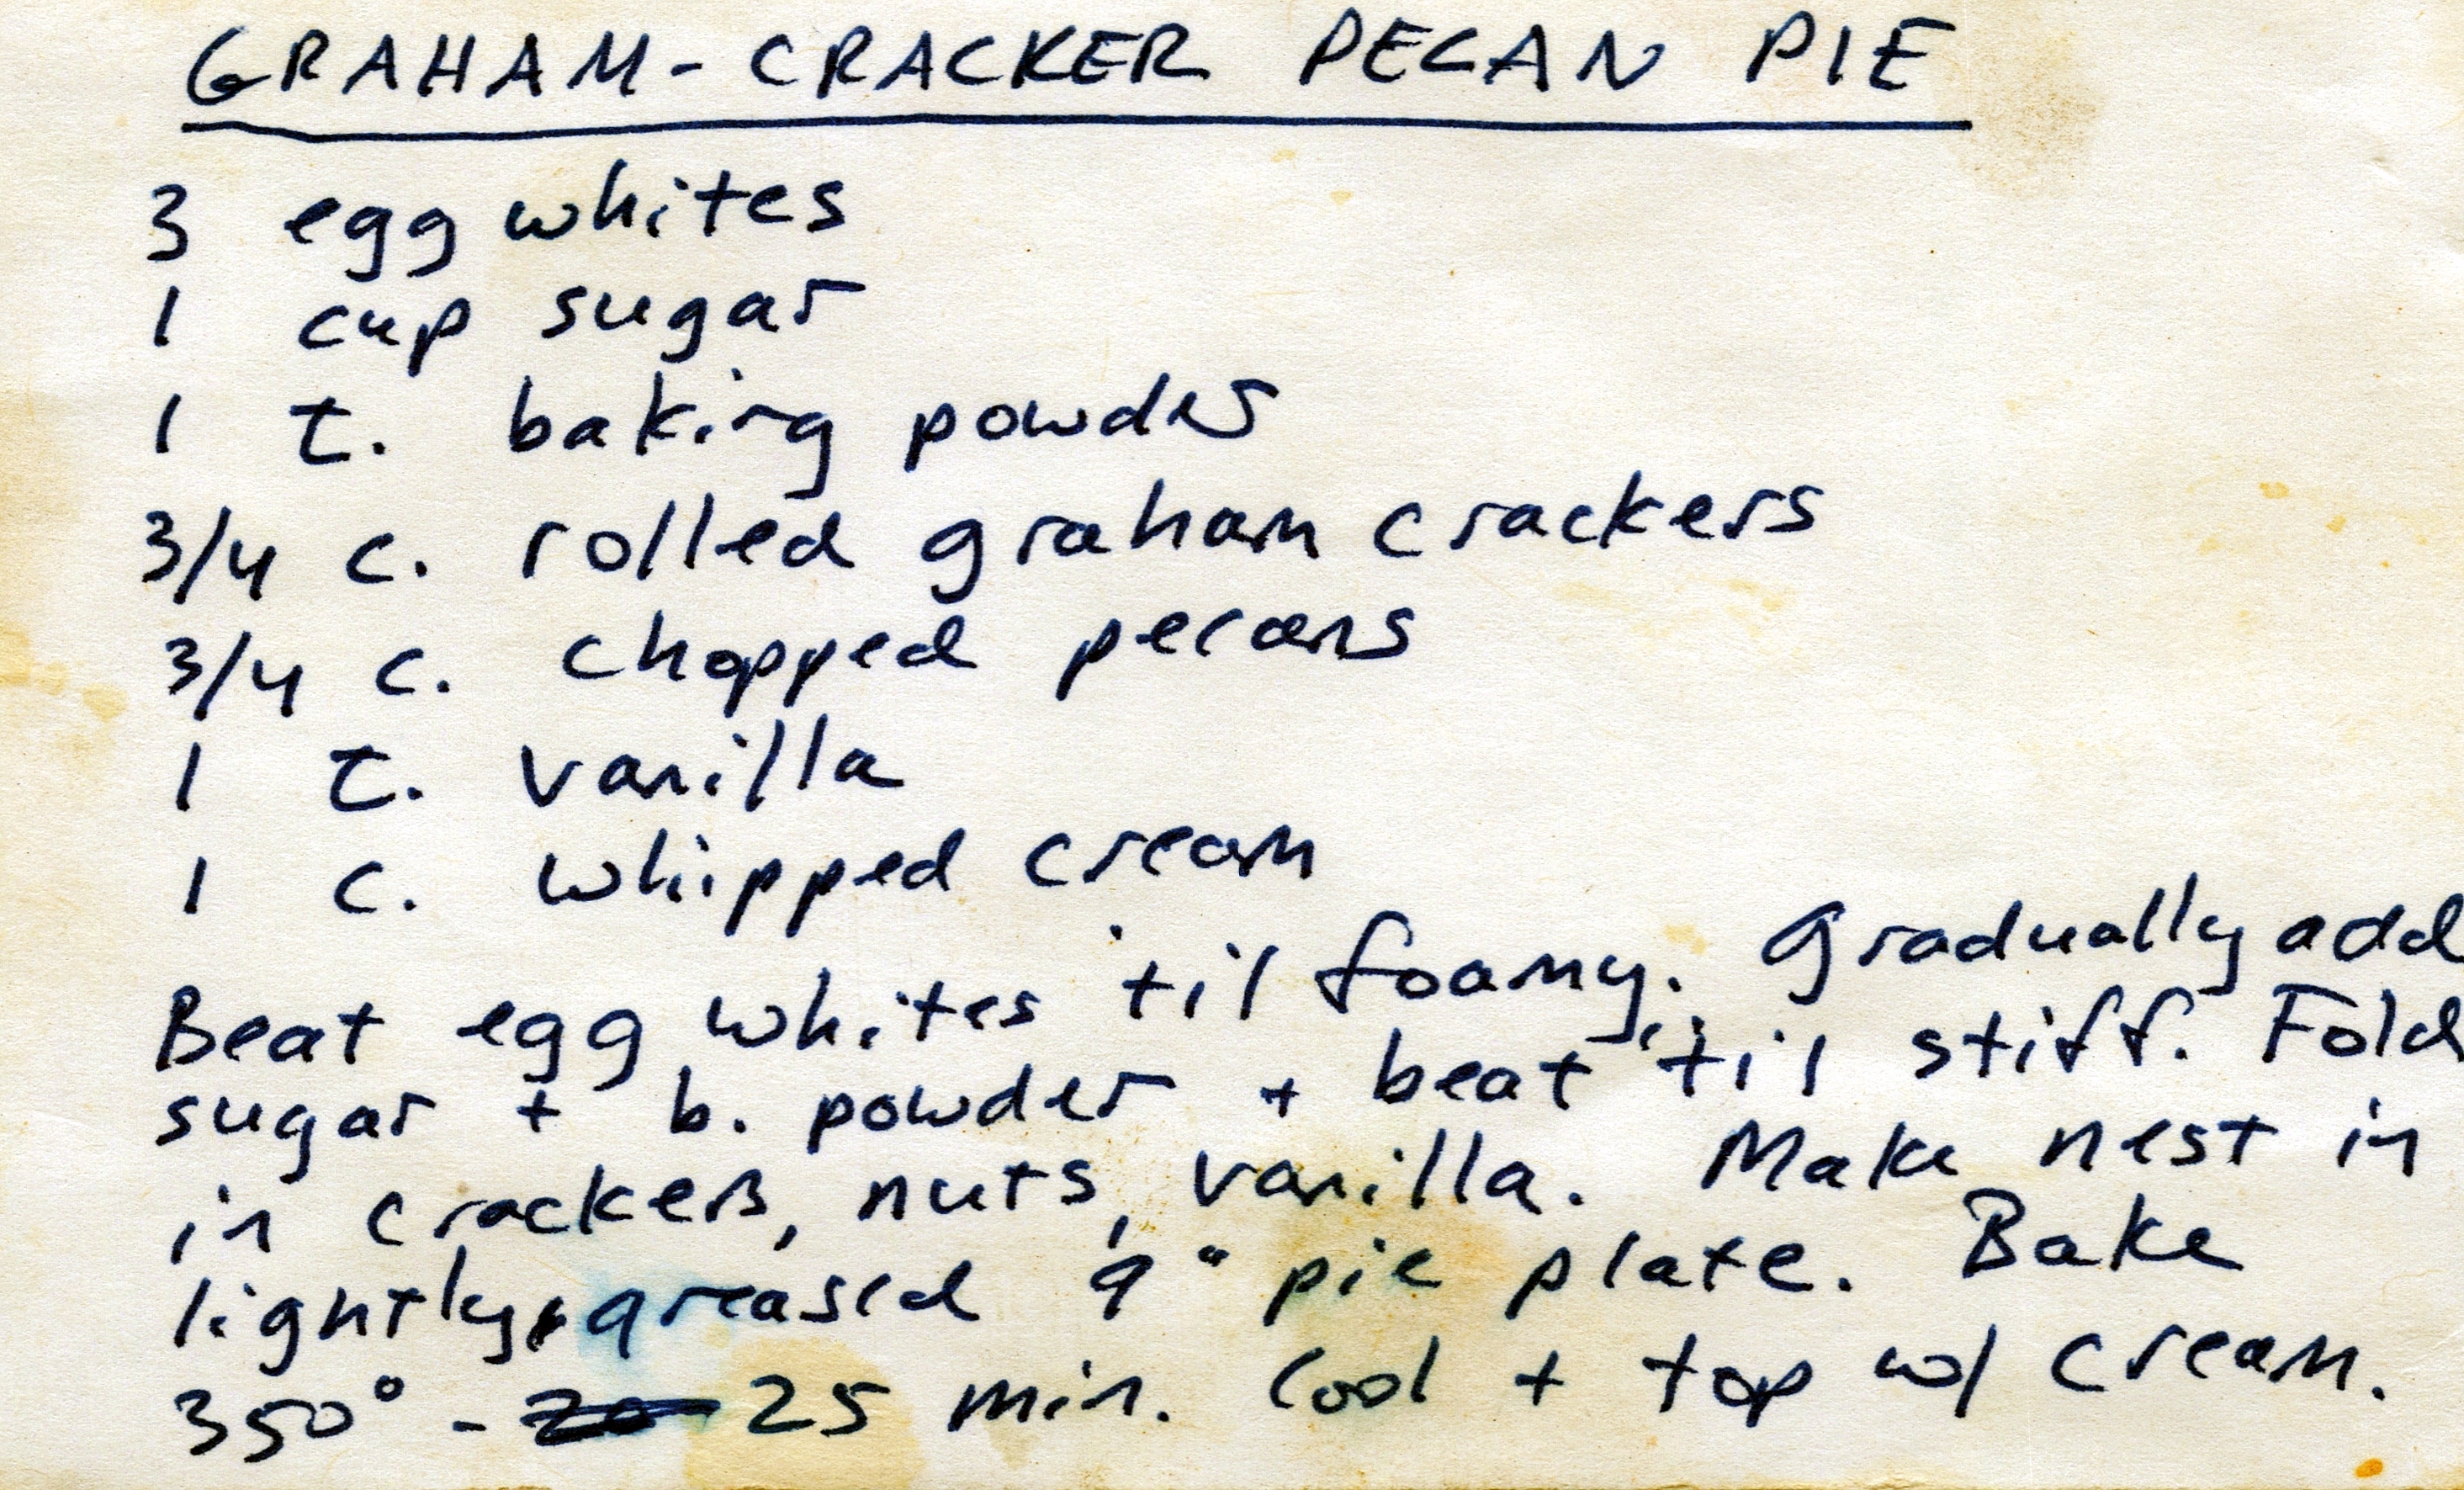 GRAHAM-CRACKER PECAN PIE
3 egg whites
1 cup sugar
1 t. baking powder
3/4 c. rolled graham crackers
3/4 c. chopped pecans
1 t. vanilla
1 c. whipped cream
Beat egg whites 'til foamy. Gradually add
sugar + b. powder + beat 'til stiff. Fold
in crackers, nuts, vanilla. Make nest in
lightly greased 9" pie plate. Bake
350° - 20 25 min. Cool + top w/ cream.